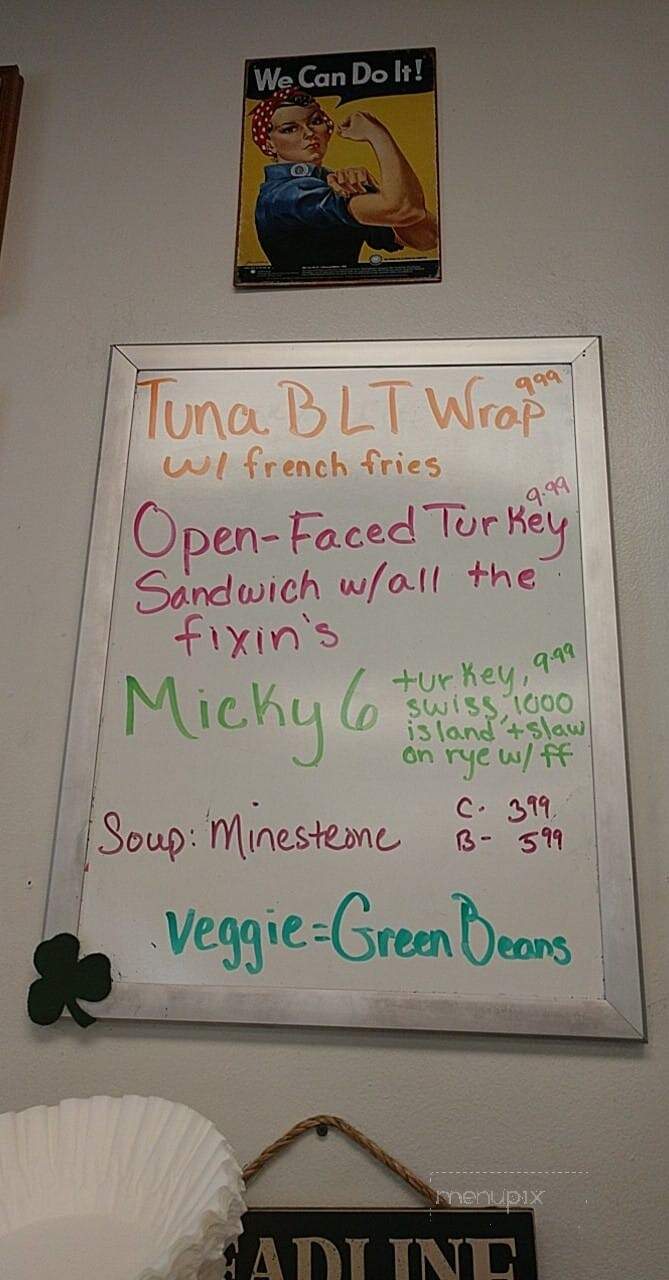 We Can Do It!
Tuna BLT Wrap 999
w/ french fries
Open-Faced Turkey 9.99
Sandwich w/all the
fixin's
Micky 6 turkey, 9.99
swiss, 1000
island + slaw
on rye w/ ff
Soup: Minesteone C. 399
B- 599
Veggie=Green Beans
menupix
EADLINE